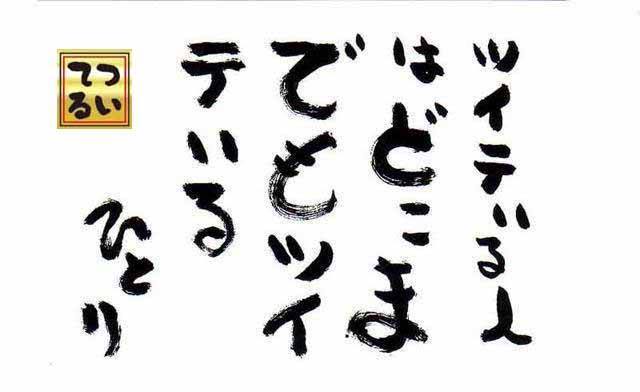 ツイテいる人
はどこま
でもツイ
テいる
ひとり
つい
てる